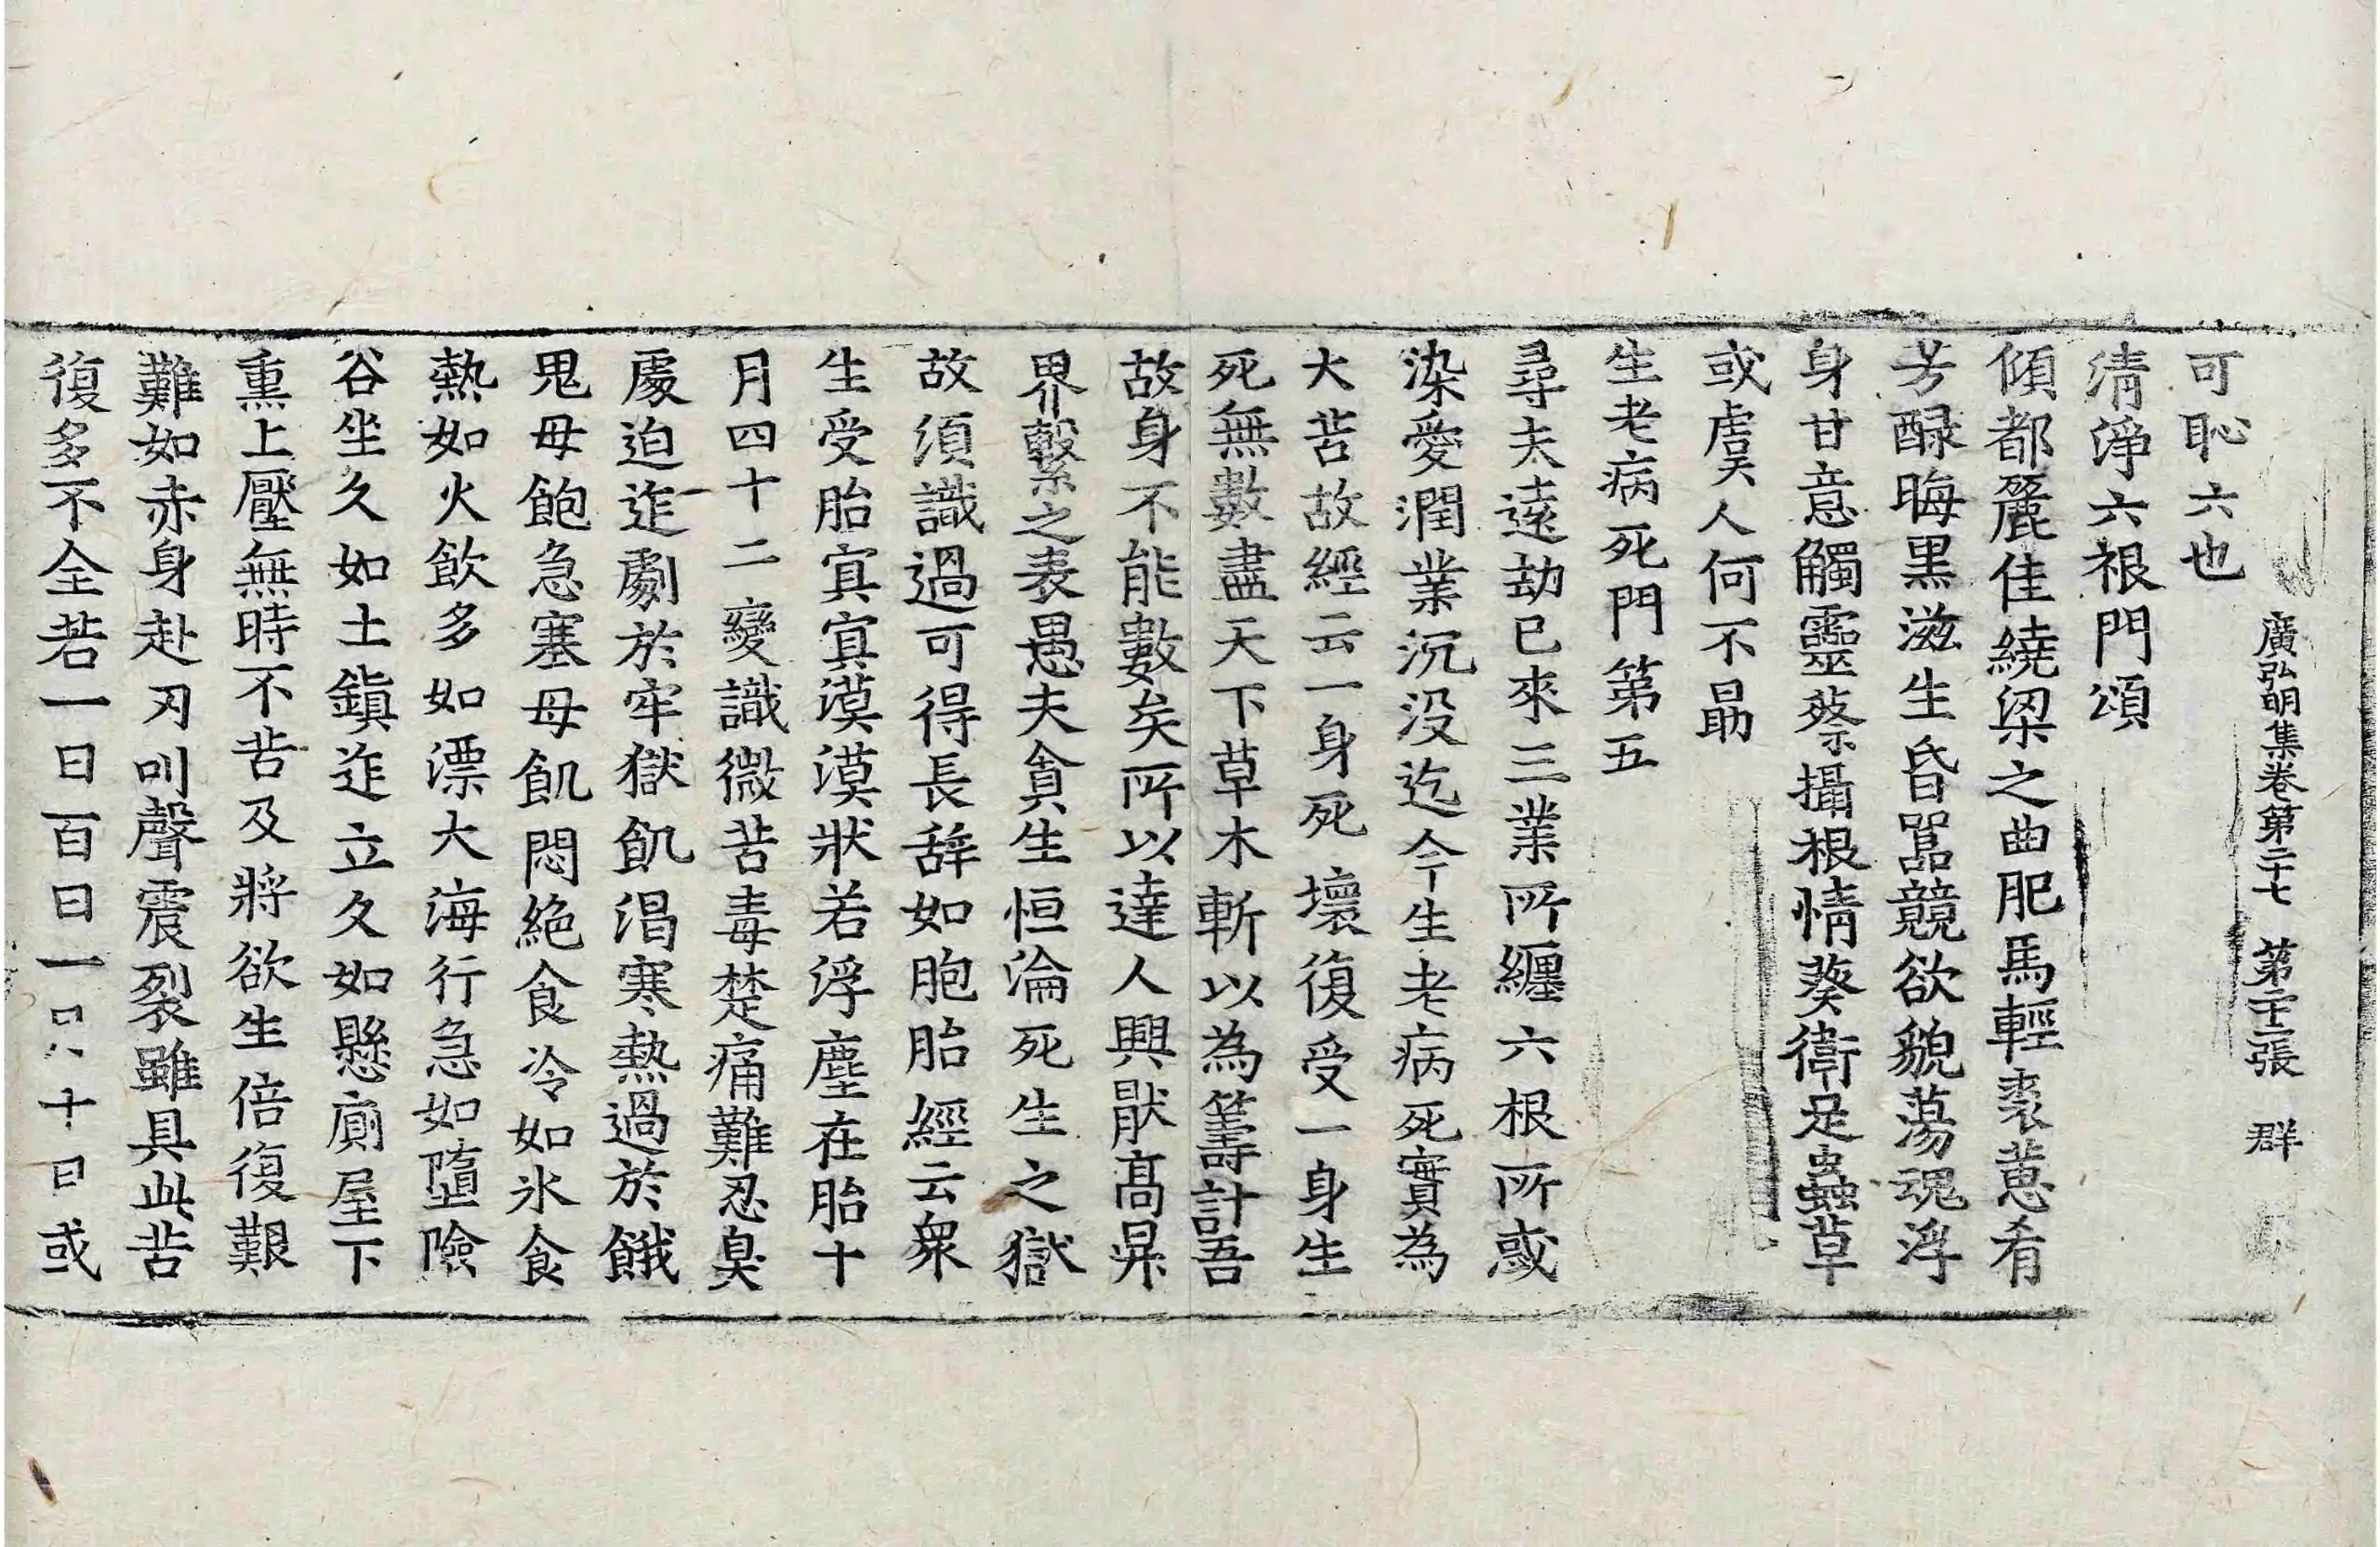 可恥六也
廣弘明集卷第二十七 第二十二張 群
清淨六根門頌
傾都麗佳繞梁之曲肥馬輕裘蔥肴
芳醁晦黑滋生昏嚚競欲貌蕩魂浮
身甘意觸靈蔡攝根情葵衛足蟲草
或虞人何不勗
生老病死門第五
尋夫遠劫已來三業所纏六根所惑
染愛潤業沉没迄今生老病死實為
大苦故經云一身死壞復受一身生
死無數盡天下草木斬以為籌計吾
故身不能數矣所以達人興猒高昇
界繫之表愚夫貪生恒淪死生之獄
故須識過可得長辝如胞胎經云衆
生受胎冥冥漠漠狀若浮塵在胎十
月四十二變識微苦毒楚痛難忍臭
處迫迮劇於牢獄飢渴寒熱過於餓
鬼母飽急塞母飢悶絶食冷如氷食
熱如火飲多如漂大海行急如墮險
谷坐久如土鎮迮立久如懸廁屋下
熏上壓無時不苦及將欲生倍復艱
難如赤身赴刃叫聲震裂雖具此苦
復多不全若一日百日一十日或